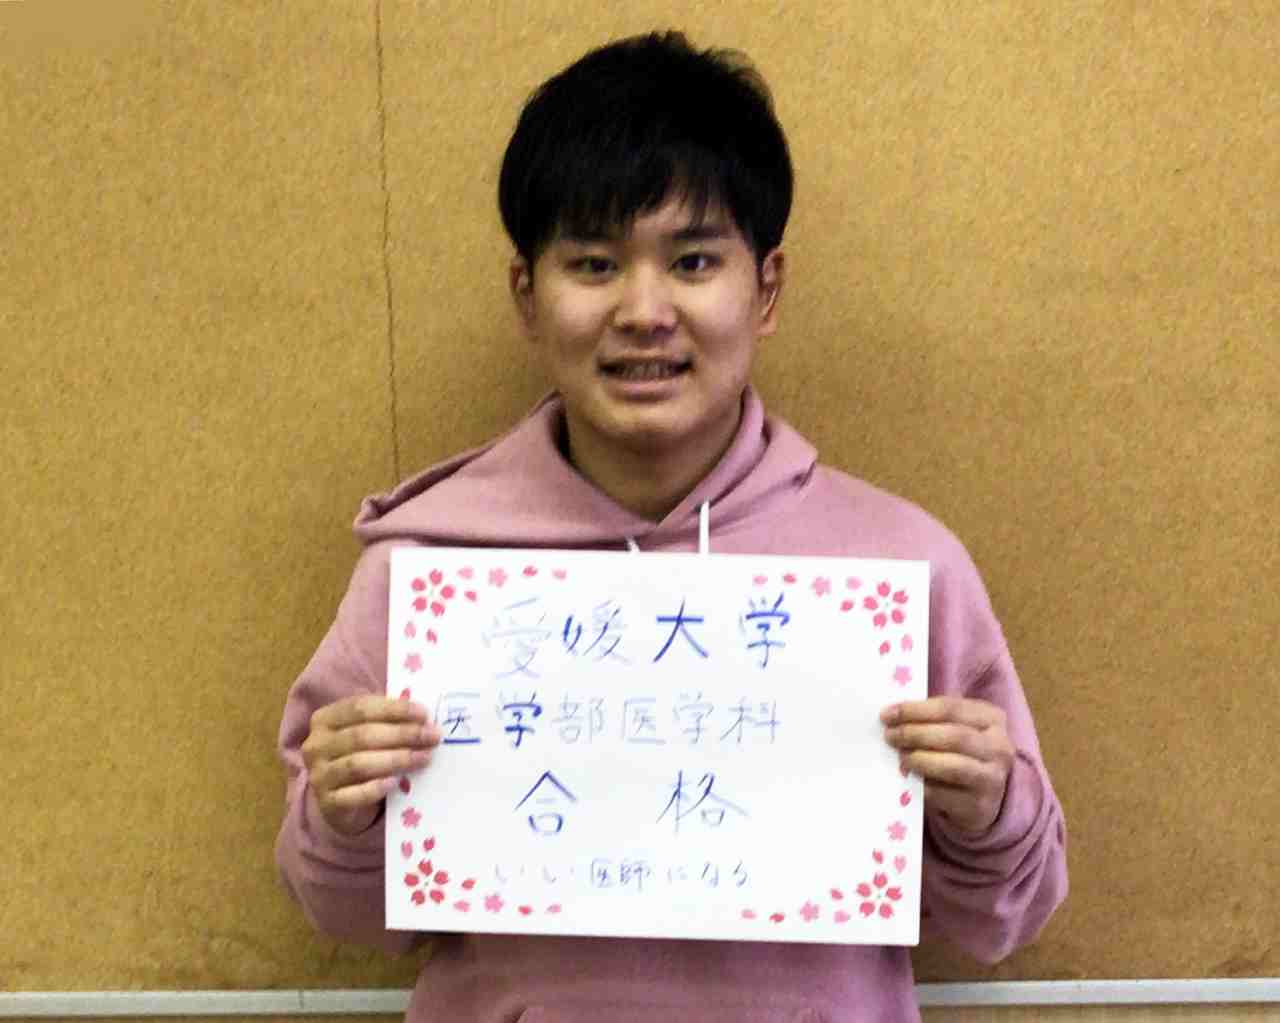 愛媛大学
医学部医学科
合格
いい医師になる